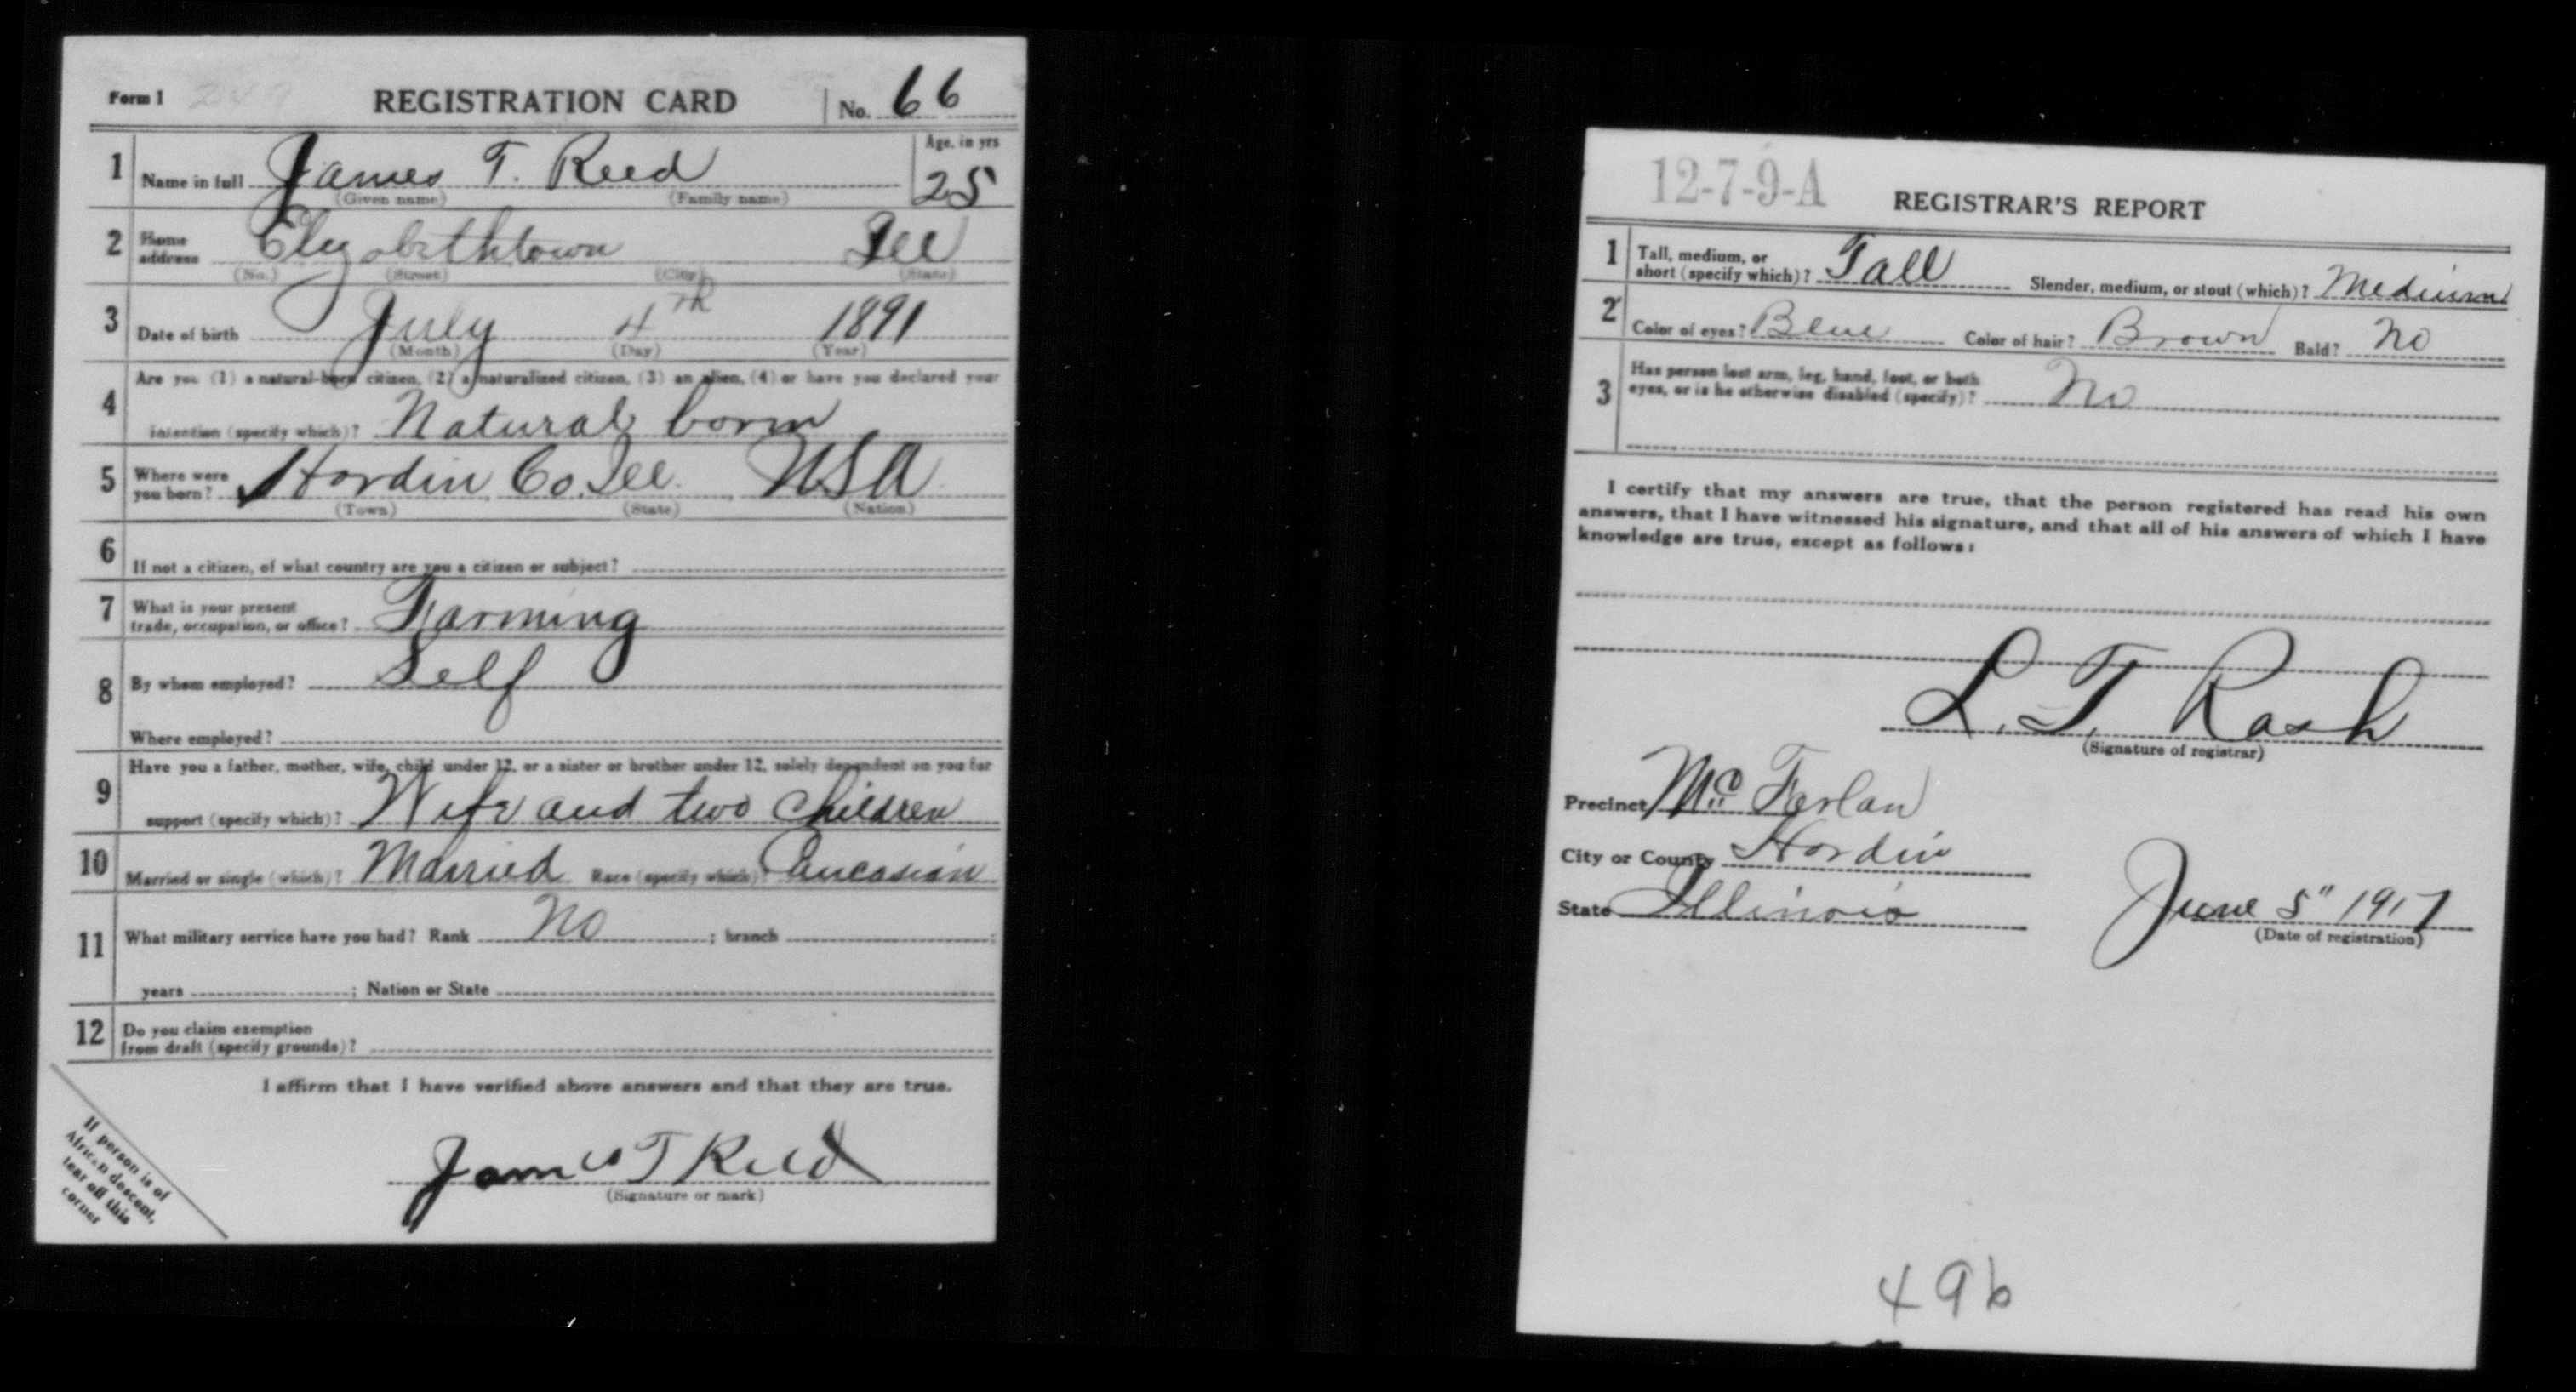 Form 1 REGISTRATION CARD No. 66
1 Name in full James T. Reed Age, in yrs 25
(Given name) (Family name)
2 Home address Elizabethtown Ill
(No.) (Street) (City) (State)
3 Date of birth July 4th 1891
(Month) (Day) (Year)
4 Are you (1) a natural-born citizen, (2) a naturalized citizen, (3) an alien, (4) or have you declared your
intention (specify which)? Natural born
5 Where were you born? Hardin Co. Ill. USA
(Town) (State) (Nation)
6 If not a citizen, of what country are you a citizen or subject?
7 What is your present
trade, occupation, or office? Farming
8 By whom employed? Self
Where employed?
9 Have you a father, mother, wife, child under 12, or a sister or brother under 12, solely dependent on you for
support (specify which)? Wife and two Children
10 Married or single (which)? Married Race (specify which)? Caucasian
11 What military service have you had? Rank No ; branch ;
years ; Nation or State
12 Do you claim exemption
from draft (specify grounds)?
I affirm that I have verified above answers and that they are true.
James T Reed
(Signature or mark)
If person is of
African descent,
tear off this
corner
12-7-9-A REGISTRAR'S REPORT
1 Tall, medium, or
short (specify which)? Tall Slender, medium, or stout (which)? Medium
2 Color of eyes? Blue Color of hair? Brown Bald? No
3 Has person lost arm, leg, hand, foot, or both
eyes, or is he otherwise disabled (specify)? No
I certify that my answers are true, that the person registered has read his own
answers, that I have witnessed his signature, and that all of his answers of which I have
knowledge are true, except as follows:
L. T. Rash
(Signature of registrar)
Precinct McFarlan
City or County Hardin
State Illinois June 5" 1917
(Date of registration)
496